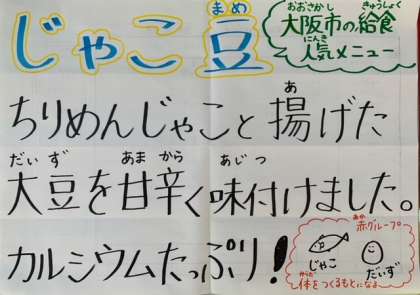 じゃこ豆
まめ
大阪市の給食
おおさかし きゅうしょく
人気メニュー
にんき
ちりめんじゃこと揚げた
あ
大豆を甘辛く味付けました。
だいず あまから あじつ
カルシウムたっぷり!
赤グループ
あか
じゃこ だいず
体をつくるもとになる
からだ